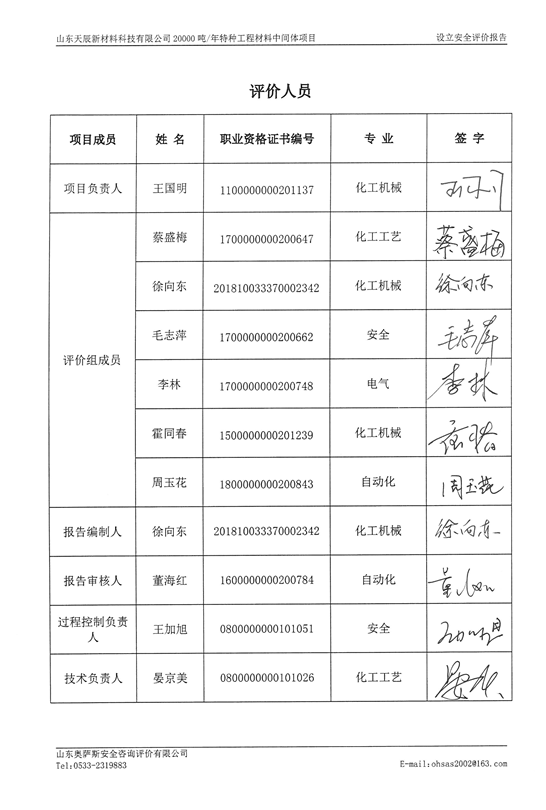 山东天辰新材料科技有限公司20000吨/年特种工程材料中间体项目 设立安全评价报告
评价人员
项目成员 姓 名 职业资格证书编号 专 业 签 字
项目负责人 王国明 1100000000201137 化工机械
评价组成员
蔡盛梅 1700000000200647 化工工艺 蔡盛梅
徐向东 201810033370002342 化工机械 徐向东
毛志萍 1700000000200662 安全 毛志萍
李林 1700000000200748 电气 李林
霍同春 1500000000201239 化工机械
周玉花 1800000000200843 自动化 周玉花
报告编制人 徐向东 201810033370002342 化工机械 徐向东
报告审核人 董海红 1600000000200784 自动化
过程控制负责
人 王加旭 0800000000101051 安全
技术负责人 晏京美 0800000000101026 化工工艺
山东奥萨斯安全咨询评价有限公司
Tel:0533-2319883 E-mail:ohsas2002@163.com